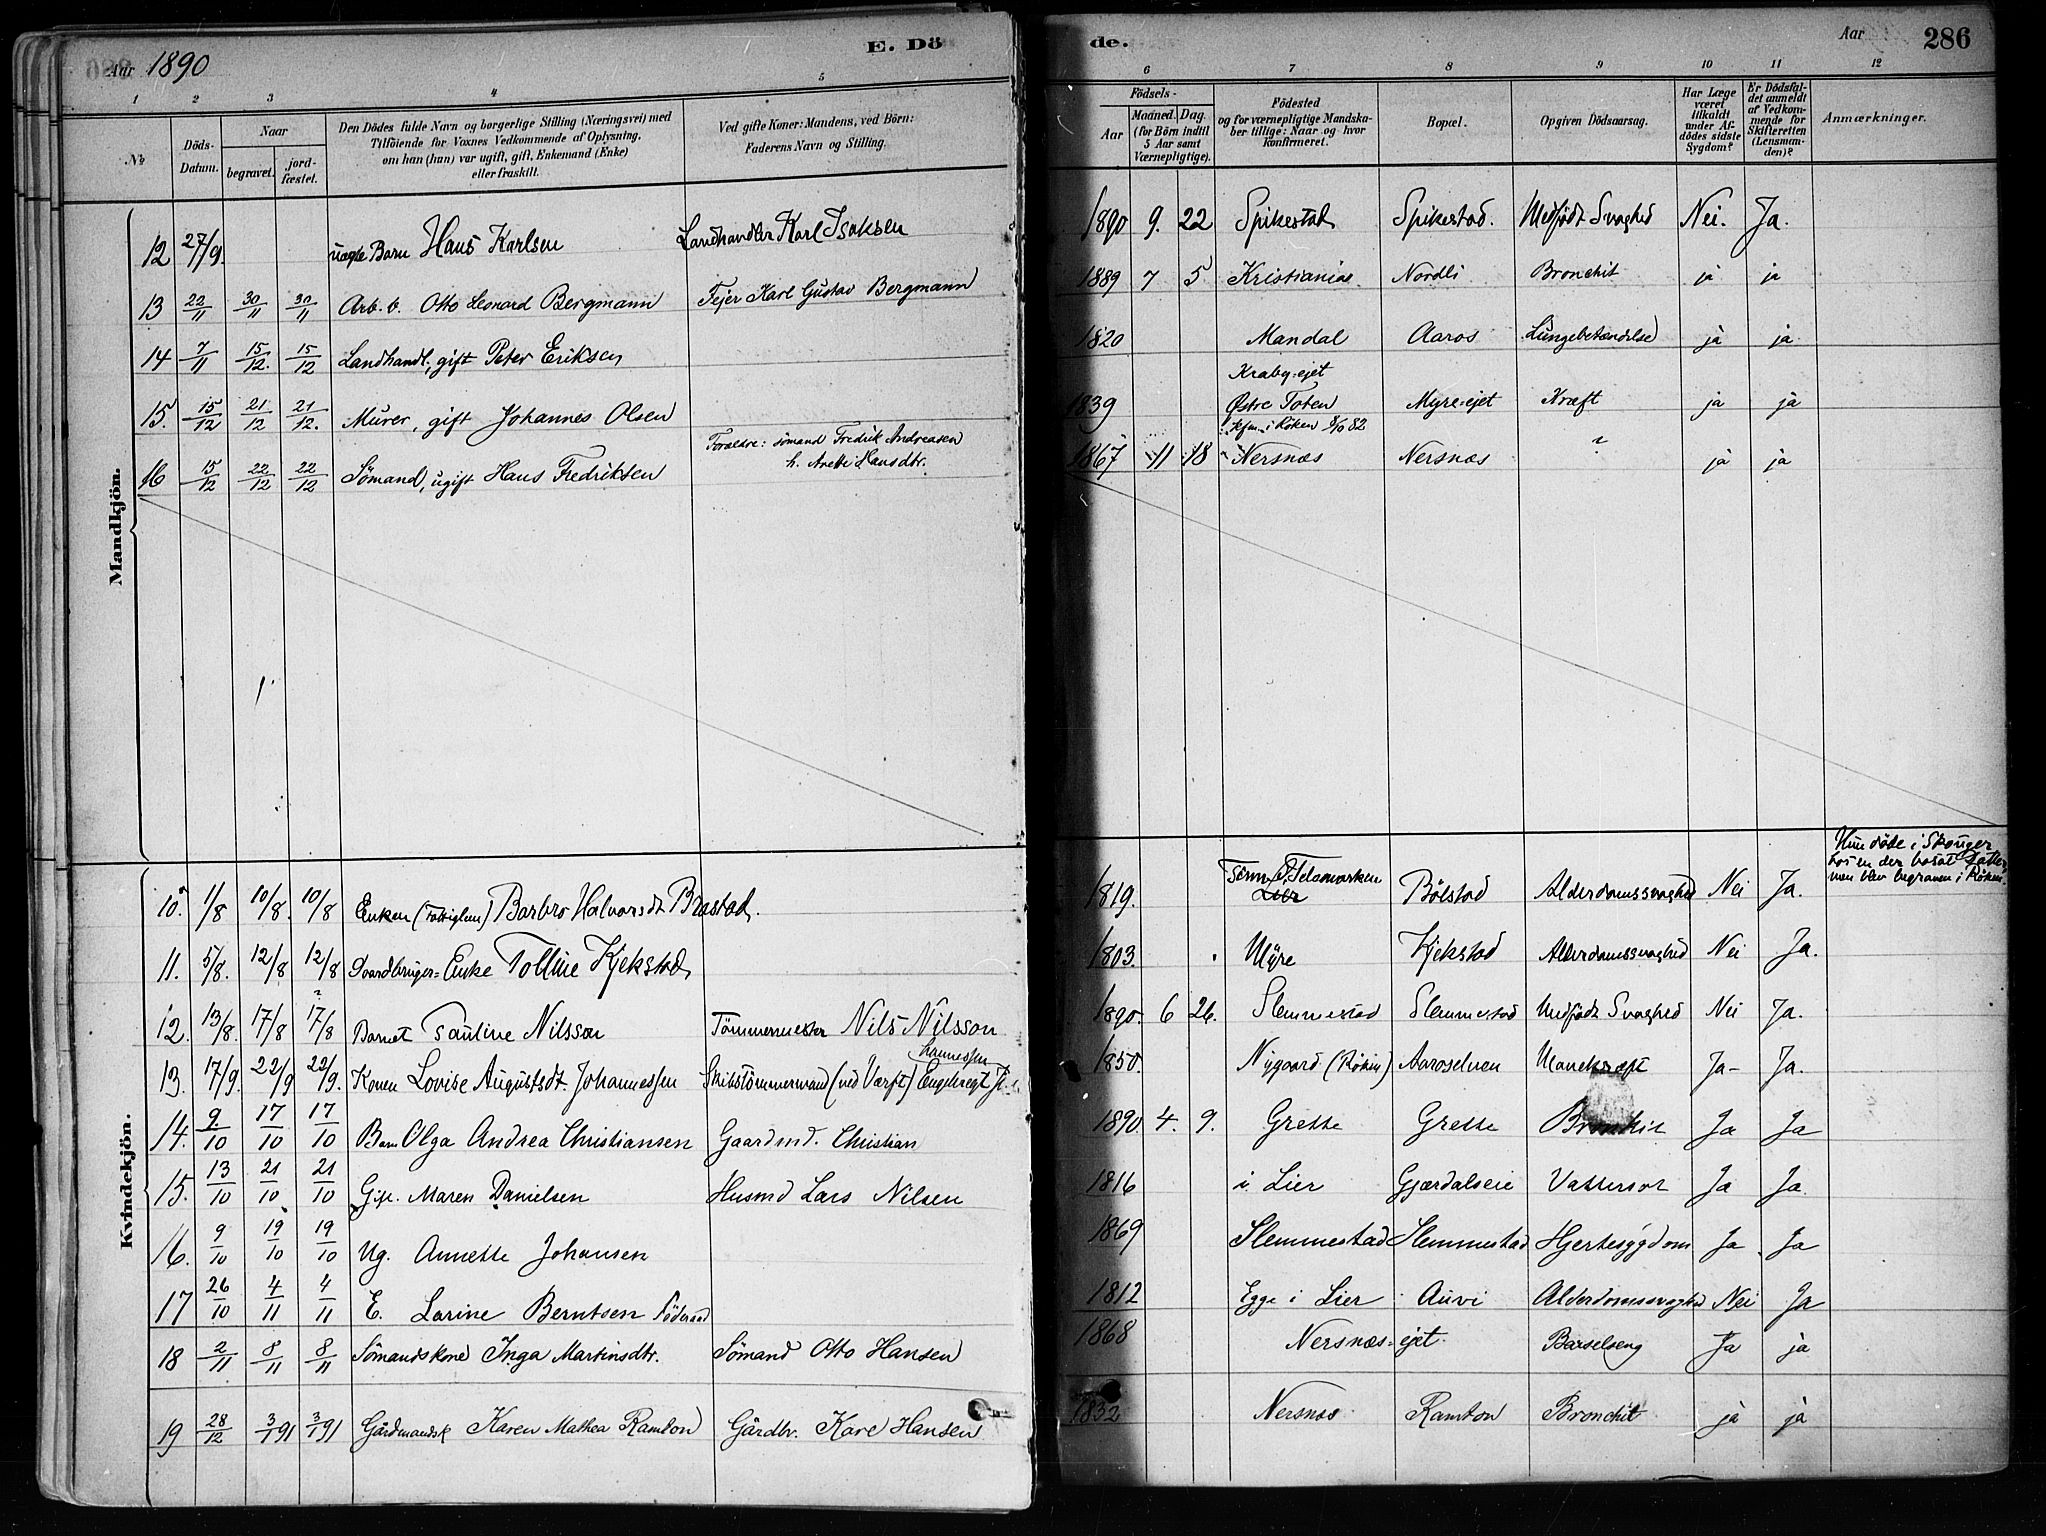 Aar 1890 E. Dö
1 2 3 4 5
No Döds-Datum. Naar begravet. jord-fæstet. Den Dödes fulde Navn og borgerlige Stilling (Næringsvei) med Tilföiende for Voxnes Vedkommende af Oplysning, om han (hun) var ugift, gift, Enkemand (Enke) eller fraskilt. Ved gifte Koner: Mandens, ved Börn: Faderens Navn og Stilling.
Mandkjön.
12 27/9. uægte Barn Hans Karlsen Landhandler Karl Isaksen
13 22/11 30/11 30/11 Arb. b. Otto Leonard Bergmann Fejer Karl Gustav Bergmann
14 7/11 15/12. 15/12 Landhandl., gift Peter Eriksen
15. 15/12 21/12 21/12. Murer, gift Johannes Olsen
16 15/12 22/12 22/12 Sömand, ugift Hans Fredriksen Forældre: sömand Fredrik Andreasen
h. Anette Hansdtr.
Kvindekjön.
10. 1/8 10/8. 10/8 Enken (Fattiglem) Barbro Halvorsdt Brastad.
11. 5/8. 12/8 12/8 Gaardbruger-Enke Tolline Kjekstad
12. 13/8. 17/8 17/8 Barnet Pauline Nilsson Tömmermester Nils Nilsson
13. 17/9. 22/9 22/9. Konen Lovise Augustsdt. Johannessen Skibstömmermand (ved Værft) Engebregt Jo
hannessen
14. 9/10 17/10 17/10 Barn Olga Andrea Christiansen Gaardmd. Christian
15. 13/10 21/10 21/10 Gift. Maren Danielsen Husmd Lars Nilsen
16. 9/10 19/10 19/10 Ug. Annette Johansen
17 26/10 4/11 4/11 E. Larine Berntsen Föderaad
18 2/11 8/11 8/11 Sömandskone Inga Martinsdtr. Sömand Otto Hansen
19 28/12 3/1 91 3/1 91 Gårdmandsk Karen Mathea Ramton Gårdbr. Kare Hansen
de. Aar 286
6 7 8 9 10 11 12
Födsels- Aar Maaned. Dag. (for Börn indtil 5 Aar samt Værnepligtige). Födested og for værnepligtige Mandskaber tillige: Naar og hvor konfirmeret. Bopæl. Opgiven Dödsaarsag. Har Læge været tilkaldt under Afdödes sidste Sygdom? Er Dödsfaldet anmeldt af Vedkommende for Skifteretten (Lensmanden)? Anmærkninger.
1890 9. 22 Spikestad Spikestad. Medfödt Svaghed Nei. Ja.
1889 7 5 Kristiania Nordli Bronchit ja ja
1820 Mandal Aaros Lungebetændelse ja ja
Kraby-ejet
1839 Østre Toten Myre-ejet Kræft ja ja
kfm. i Röken 8/10 82
1867 11 18 Nersnæs Nersnæs ? ja ja
Hun döde i Skouger
hos en der bosat Datter,
men blev begraven i Röken.
1819. Telemarken
Lier Bölstad Alderdomssvaghed Nei Ja.
1803. Myre Kjekstad Alderdomssvaghed Nei Ja.
1890. 6 26. Slemmestad Slemmestad Medfödt Svaghed Nei Ja.
1850. Nygaard (Röken) Aaroselven Mavekræft Ja- Ja.
1890. 4. 9. Grette Grette Bronchit Ja Ja
1816 i Lier Gjærdalseie Vattersot Ja Ja
1869 Slemmestad Slemmestad Hjertesygdom Ja Ja
1812 Egge i Lier Auvi Alderdomssvaghed Nei Ja
1868 Nersnæs-ejet. Barselseng Ja ja
1832 Nersnæs Ramton Bronchit ja ja